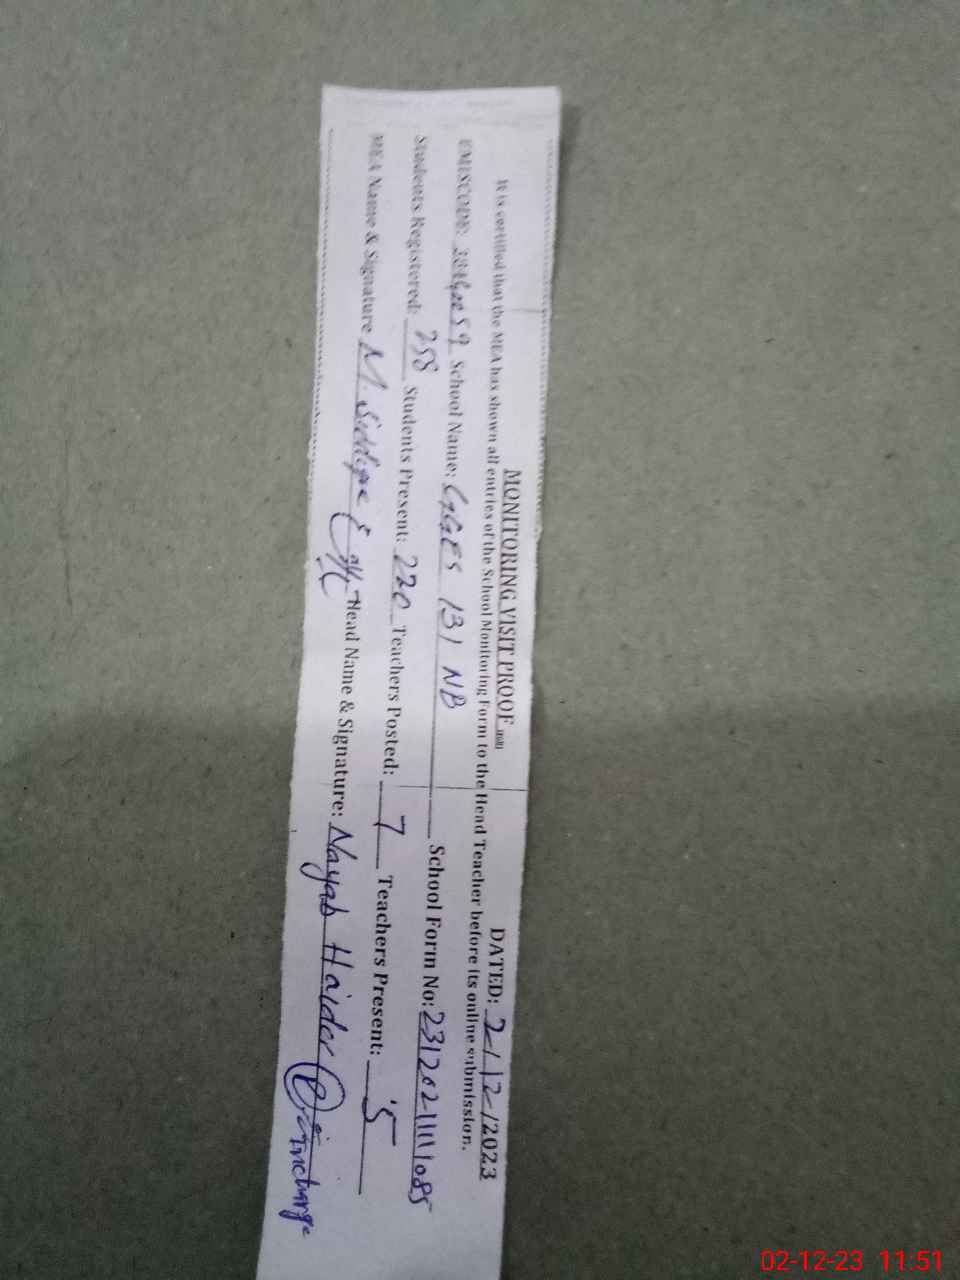 MONITORING VISIT PROOF DATED: 2/12/2023
It is certified that the MEA has shown all entries of the School Monitoring Form to the Head Teacher before its online submission.
EMISCODE: School Name: GGES 131 NB School Form No:
Students Registered: 258 Students Present: 220 Teachers Posted: 7 Teachers Present: 5
MEA Name & Signature M. Siddique Head Name & Signature: Nayab Haider incharge
02-12-23 11:51